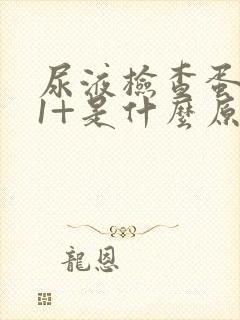 尿液檢查蛋
1+是什麼原
龍恩